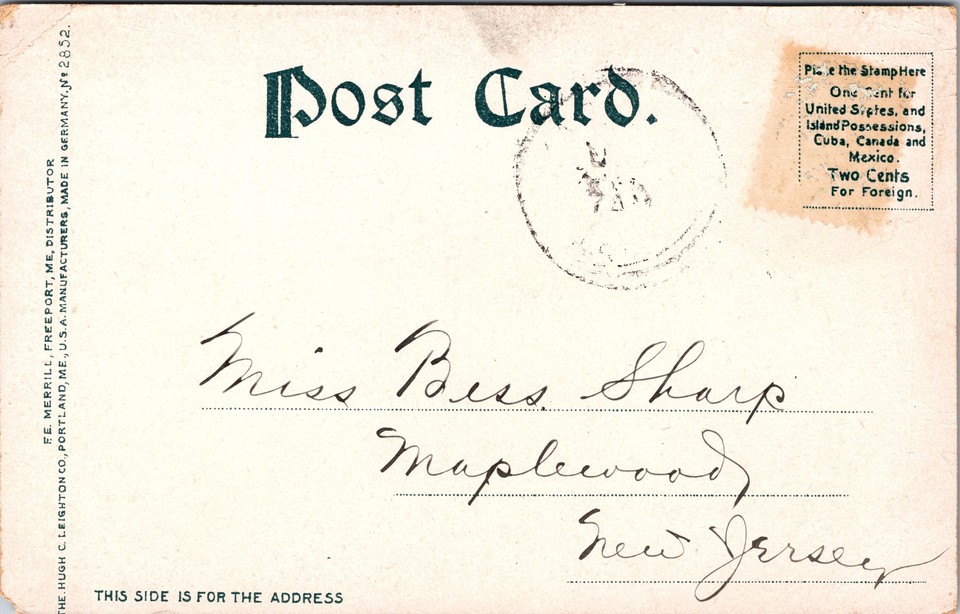 Post Card.
Place the Stamp Here
One Cent for
United States, and
Island Possessions,
Cuba, Canada and
Mexico.
Two Cents
For Foreign.
Miss Bess Sharp
Maplewood,
New Jersey
THIS SIDE IS FOR THE ADDRESS
F.E. MERRILL, FREEPORT, ME, DISTRIBUTOR
THE HUGH C. LEIGHTON CO., PORTLAND, ME., U.S.A. MANUFACTURERS, MADE IN GERMANY. No 2852.